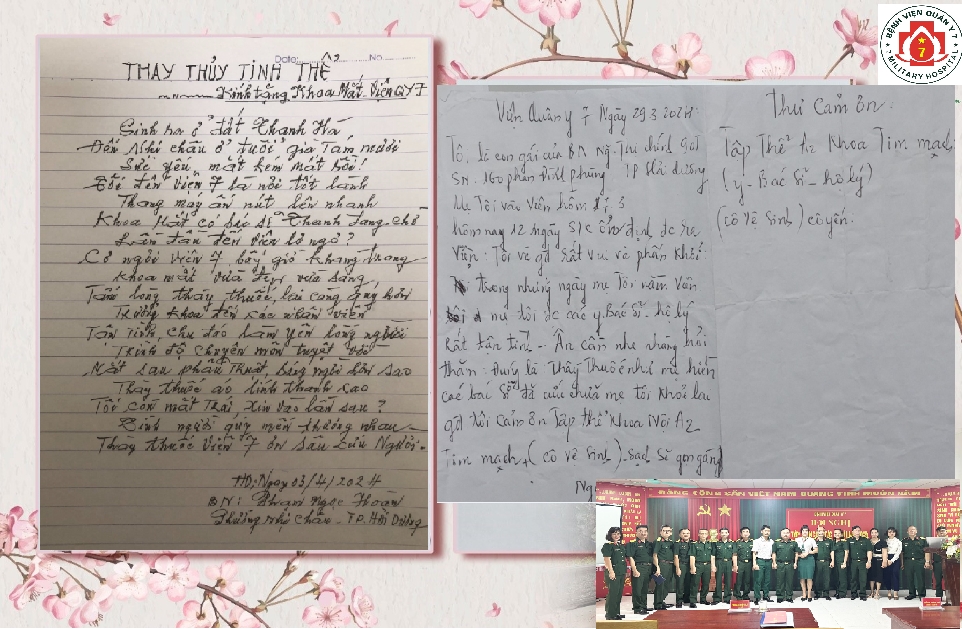 BỆNH VIỆN QUÂN Y 7
7
MILITARY HOSPITAL
Date: No
THẦY THỦY TINH THỂ
Kính tặng Khoa Mắt - Viện QY7
Sinh ra ở đất Thanh Hà
Đến Nhị châu ở tuổi già Tám mươi
Sức yếu, mắt kém
đến viện 7 là nơi tốt lành
Thang máy ấn nút lên nhanh
Khoa Mắt có bác sĩ Thanh
Lần đầu đến viện bỡ ngỡ?
Cơ ngơi viện 7 bây giờ Khang trang
Khoa mắt vừa vừa sang
Tấm lòng thầy thuốc, lại càng quý hơn
Trưởng khoa đến các nhân viên
Tận tình, chu đáo làm yên lòng người
Trình độ chuyên môn tuyệt vời
Mắt sau phẫu thuật, sáng ngời hơn sao
Thầy thuốc áo lính thanh cao
Tôi còn mắt Trái, xin vào lần sau?
Bình người quý mến thương nhau
Thầy thuốc viện 7 ơn sâu Cứu Người.
HD; Ngày 03/4/2024
BN: Phan Ngọc Hoàn
Phường Nhị Châu - TP. Hải Dương
Viện Quân y 7 Ngày 29.3.2024
Tô, là con gái của BN Ng-
SN: 160 phan Đình Phùng TP Hải dương
Mẹ Tôi vào Viện hôm 3
hôm nay 12 ngày S/c ổn định đc ra
Viện: Tôi về gđ rất vui và phấn khởi
trong những ngày mẹ Tôi nằm Viện
mẹ tôi đc các y. Bác sĩ - hộ lý
Rất tận tình - Ân cần như những người
thân: đúng là Thầy Thuốc như mẹ hiền
các bác sĩ đã cứu chữa mẹ tôi Khỏi
gđ tôi cảm ơn Tập thể Khoa Nội A2
Tim mạch, (cô vệ sinh) Sạch Sẽ gọn gàng
Ng
Thư Cảm ơn:
Tập Thể A2 Khoa Tim mạch
(y - Bác Sĩ - hộ lý)
(cô vệ Sinh) cô yến:
ĐẢNG CỘNG SẢN VIỆT NAM QUANG VINH MUÔN NĂM
HỘI NGHỊ